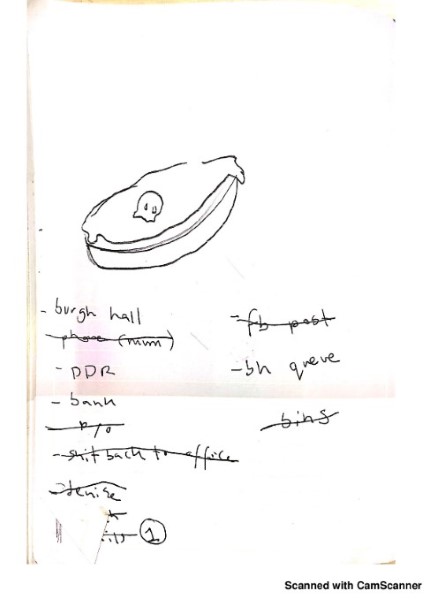 - burgh hall
- phone (mum)
- PDR
- bank
- p/o
- shit back to office
- denise
1
- fb post
- bh queue
- bins
Scanned with CamScanner